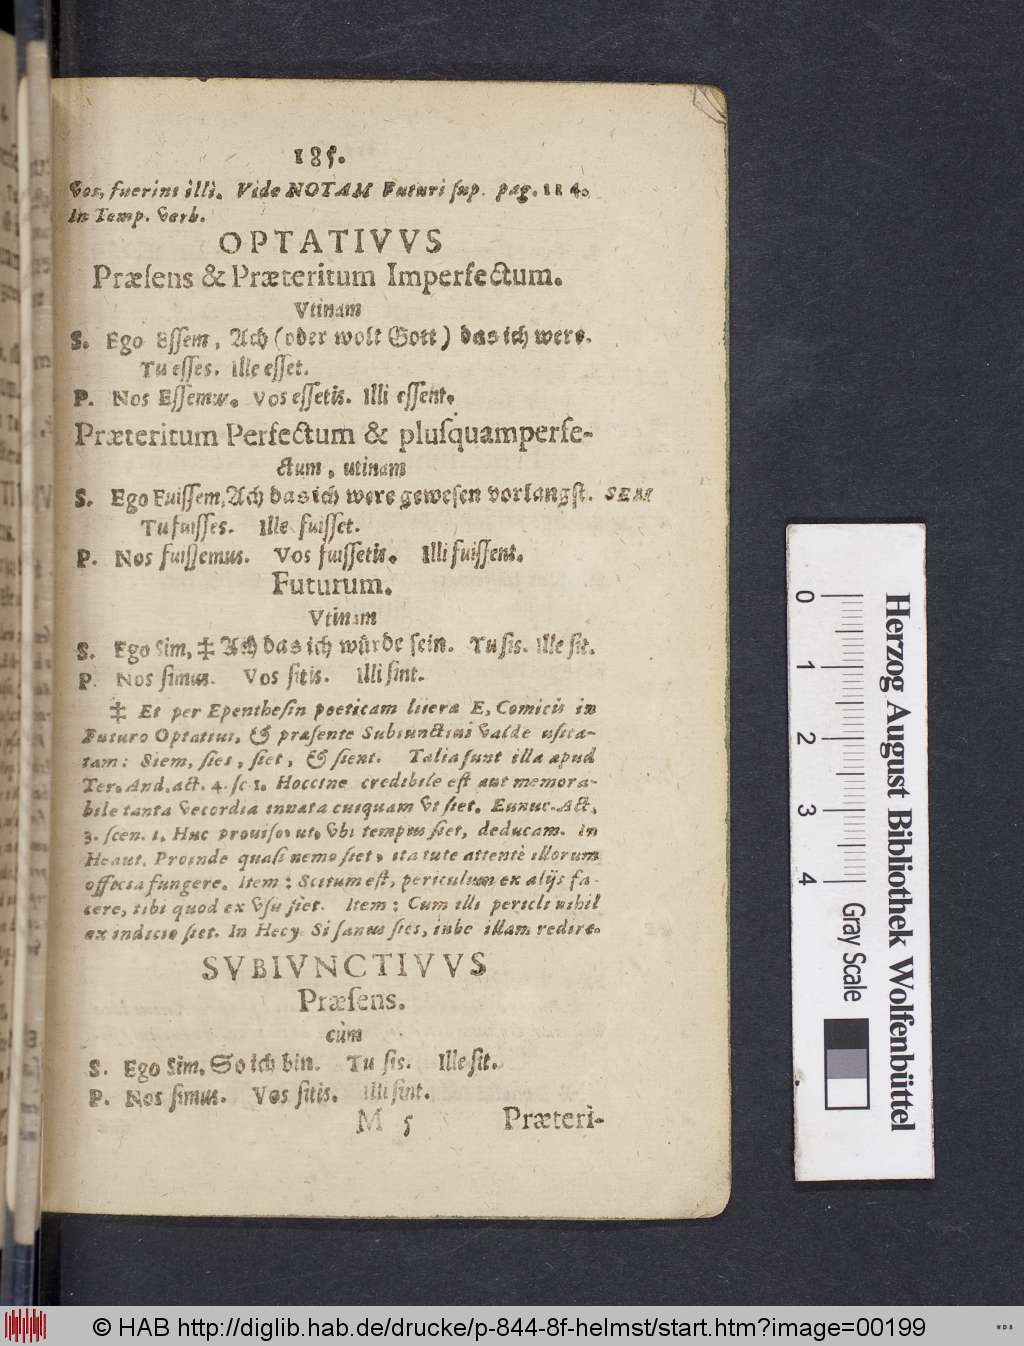 185.
Vos, fuerint illi. Vide NOTAM Futuri ſup. pag. 114.
In Temp. verb.
OPTATIVVS
Præſens & Præteritum Imperfectum.
Vtinam
S. Ego Eſſem, Ach (oder wolt Gott) das ich were.
Tu eſſes. Ille eſſet.
P. Nos Eſſemus. Vos eſſetis. Illi eſſent.
Præteritum Perfectum & pluſquamperfe-
ctum, utinam
S. Ego Fuiſſem, Ach das ich were geweſen vorlangſt. SEM
Tu fuiſſes. Ille fuiſſet.
P. Nos fuiſſemus. Vos fuiſſetis. Illi fuiſſent.
Futurum.
Vtinam
S. Ego Sim, ‡ Ach das ich würde ſein. Tu ſis. Ille ſit.
P. Nos ſimus. Vos ſitis. Illi ſint.
‡ Et per Epentheſin poeticam litera E, Comicis in
Futuro Optativi, & præſente Subiunctivi valde uſita-
tam: Siem, ſies, ſiet, & ſient. Talia ſunt illa apud
Ter. And. act. 4. ſc 1. Hoccine credibile eſt aut memora-
bile tanta vecordia innata cuiquam vt ſiet. Eunuc. Act.
3. ſcen. 1. Huc proviſo, ut, vbi tempus ſiet, deducam. In
Heaut. Proinde quaſi nemo ſiet, ita tute attentè illorum
officia fungere. Item: Scitum eſt, periculum ex alijs fa-
cere, tibi quod ex vſu ſiet. Item: Cum illi pericli nihil
ex indicio ſiet. In Hecy. Si ſanus ſies, iube illam redire.
SVBIVNCTIVVS
Præſens.
cùm
S. Ego Sim, So ich bin. Tu ſis. Ille ſit.
P. Nos ſimus. Vos ſitis. Illi ſint.
M 5 Præteri-
0 1 2 3 4
Gray Scale
Herzog August Bibliothek Wolfenbüttel
© HAB http://diglib.hab.de/drucke/p-844-8f-helmst/start.htm?image=00199